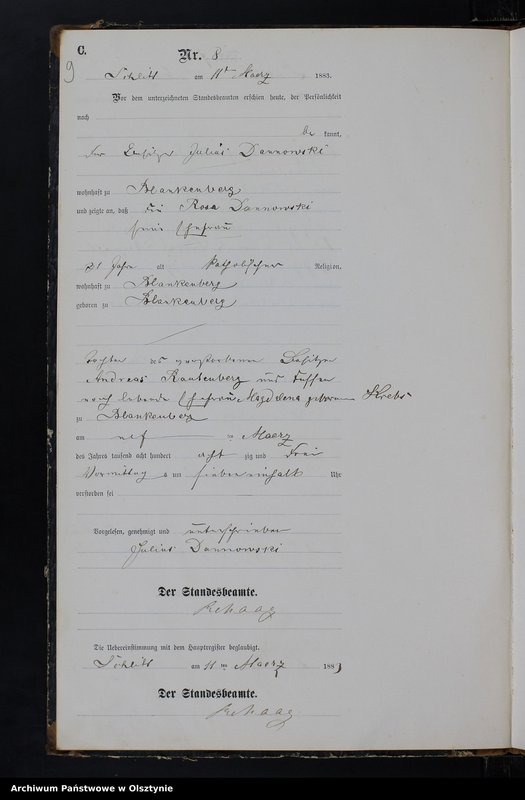 C.
9
Nr. 8
Schlitt am 11t Maerz 1883.
Vor dem unterzeichneten Standesbeamten erschien heute, der Persönlichkeit
nach
be kannt,
der Besitzer Julius Dannowski
wohnhaft zu Blankenberg
und zeigte an, daß die Rosa Dannowski
seine Ehefrau
21 Jahre alt katholischer Religion,
wohnhaft zu Blankenberg
geboren zu Blankenberg
Tochter des verstorbenen Besitzer
Andreas Rautenberg und dessen
noch lebende Ehefrau Magdlena geborenen Krebs
zu Blankenberg
am elf ten Maerz
des Jahres tausend acht hundert acht zig und drei
Vormittag s um sieben einhalb Uhr
verstorben sei
Vorgelesen, genehmigt und unterschrieben
Julius Dannowski
Der Standesbeamte.
Die Uebereinstimmung mit dem Hauptregister beglaubigt.
Schlitt am 11 ten Maerz 1883
Der Standesbeamte.
Archiwum Państwowe w Olsztynie